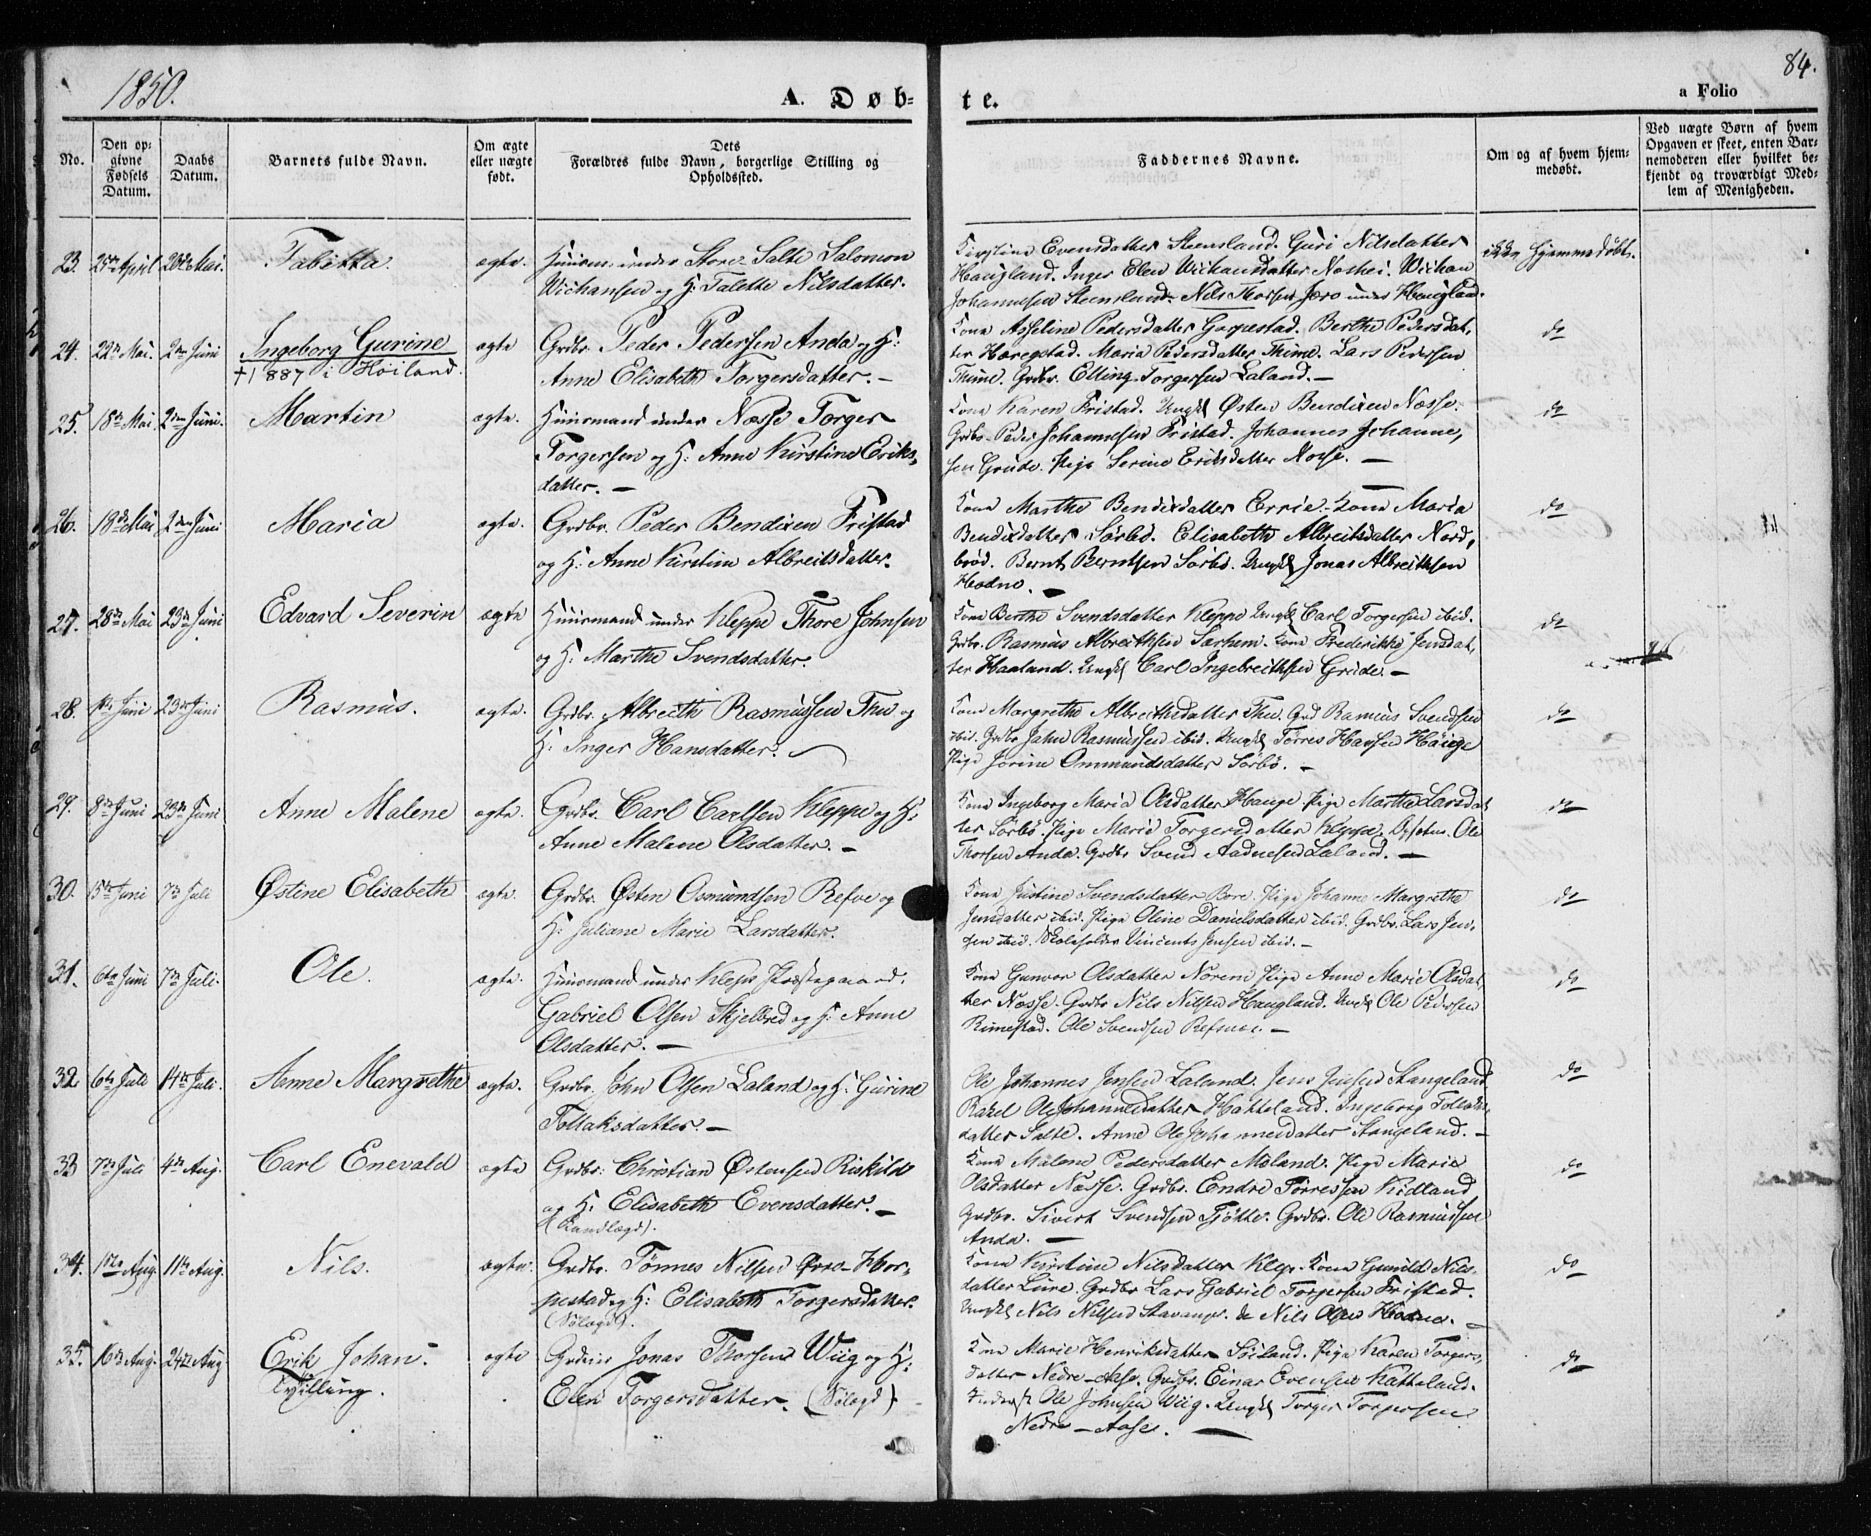 1850.
A. Døb-
te.
84.
a Folio
No.
Den op-
givne
Fødsels
Datum.
Daabs
Datum.
Barnets fulde Navn.
Om ægte
eller uægte
født.
Dets
Forældres fulde Navn, borgerlige Stilling og
Opholdssted.
Faddernes Navne.
Om og af hvem hjem-
medøbt.
Ved uægte Børn af hvem
Opgaven er skeet, enten Bar-
nemoderen eller hvilket be-
kjendt og troværdigt Med-
lem af Menigheden.
23. April 20de Mai. Tabitta. ægte. Huusm. under Store Salte Salomon
Wichansen og H: Talette Nilsdatter.
Kirstine Evensdatter Steensland. Guri Nilsdatter
Haugland. Inger Elen Wichansdatter Wichan
Johannesen Steensland. Nils Thorsen Jæro under Haugland.
ikke hjemmedøbt.
24. 22de Mai. 2den Juni Ingeborg Gurine ægte Grdbr. Peder Pedersen Anda og H:
† 1887 i Høiland.
Anne Elisabeth Torgersdatter. –
Kone Asseline Pedersdatter Garpestad. Berthe Pedersdat,
ter Haregstad. Maria Pedersdatter Thime. Lars Pedersen
Thime. Grdbr. Elling Torgersen Laland. –
do
25. 18de Mai. 2den Juni. Martin ægte. Huusmand under Næsse Torger
Torgersen og H: Anne Kirstine Eriks,
datter. –
Kone Karen Fristad. Ungk. Østen Bendixen Næsse.
Grdbr. Peder Johannesen Fristad. Johannes Johanne,
sen Grude. Pige Serine Eriksdatter Næsse. –
do
26. 18de Mai 2den Juni Maria ægte. Grdbr. Peder Bendixen Fristad
og H: Anne Kirstine Albreitsdatter.
Kone Marthe Bendixdatter Errie. Kone Maria
Bendixdatter Sørbø. Elisabeth Albreitsdatter Nord,
brød. Bernt Berntsen Sørbø. Ungk. Jonas Albreithsen
Hodne. –
do
27. 28de Mai 23de Juni Edvard Severin ægte Huusmand under Kleppe Thore Johnsen
og H: Marthe Svendsdatter.
Kone Berthe Svendsdatter Kleppe Ungk. Carl Torgersen ibid.
Grdbr. Rasmus Albreithsen Sarhem. Kone Frederikke Jensdat,
ter Haaland. Ungk. Carl Ingebreithsen Grude. –
do
28. 1ste Juni 23de Juni Rasmus. ægte. Grdbr. Albreith Rasmussen Thu og
H: Inger Hansdatter.
Kone Margrethe Albreithsdatter Thu. Grd Rasmus Svendsen
ibid. Grdbr. Jahn Rasmussen ibid. Ungk. Tørres Hansen Hauge
Pige Jorine Ommundsdatter Sørbø. –
do
29. 8de Juni 23de Juni Anne Malene ægte. Grdbr. Carl Carlsen Kleppe og H:
Anne Malene Olsdatter. –
Kone Ingeborg Maria Olsdatter Hauge. Pige Marthe Larsdat
ter Sørbø. Pige Marie Torgersdatter Kleppe. Ole
Thorsen Anda. Grdbr Svend Aadnesen Laland. –
do
30. 15de Juni 7de Juli Østine Elisabeth ægte. Grdbr. Østen Osmundsen Refve og
H: Juliane Marie Larsdatter.
Kone Justine Svendsdatter Bore. Pige Johanne Margrethe
Jensdatter ibid. Pige Oline Danielsdatter ibid. Grdbr. Lars Jen,
sen ibid. Skoleholder Vincents Jensen ibid. –
do
31. 6te Juni 7de Juli. Ole. ægte. Huusmand under Klepps Præstegaard.
Gabriel Olsen Skjelbred og H: Anne
Olsdatter. –
Kone Gunvor Olsdatter Norem. Pige Anne Marie Olsdat,
ter Næsse. Grdbr Nils Nilsen Haugland. Ungk. Ole Pedersen
Rimestad. Ole Svendsen Refsnes. –
do
32 6te Juli 14de Juli. Anne Margrethe ægte. Grdbr. John Olsen Laland og H: Gurine
Tollaksdatter. –
Ole Johannes Jensen Laland. Jens Jensen Stangeland
Rakel Ole Johannesdatter Hatteland. Ingeborg Tollaks,
datter Salte. Anne Ole Johannesdatter Stangeland. –
do
33 7de Juli 4de Aug. Carl Enevald ægte Grdbr. Christian Østensen Riskild
og H: Elisabeth Evensdatter. –
(Sandlægd).
Kone Malene Pedersdatter Meland. Pige Marie
Olsdatter Næsse. Grdbr. Endre Tørressen Kidland
Grdbr. Sivert Svendsen Tjøtte. Grdbr. Ole Rasmussen
Anda. –
do
34. 1ste Aug. 11te Aug. Nils. ægte. Grdbr. Tønnes Nilsen Øvre-Hor,
pestad og H: Elisabeth Torgersdatter.
(Sølægd).
Kone Kirstine Nilsdatter Klep. Kone Gunild Nils
datter Lure. Grdbr Lars Gabriel Torgersen Fristad.
Ungk. Nils Nilsen Stavanger. do Nils Olsen Hodne. –
do
35. 16de Aug. 24de Aug Erik Johan. ægte Grdeier Jonas Thorsen Wiig og H:
Tvilling.
Elen Torgersdatter. (Sølægd)
Kone Marie Henriksdatter Søiland. Pige Karen Torgers,
datter Nedre-Aase. Grdbr. Einar Evensen Katteland.
Inderst Ole Johnsen Wiig. Ungk. Torger Torgersen
Nedre-Aase. –
do